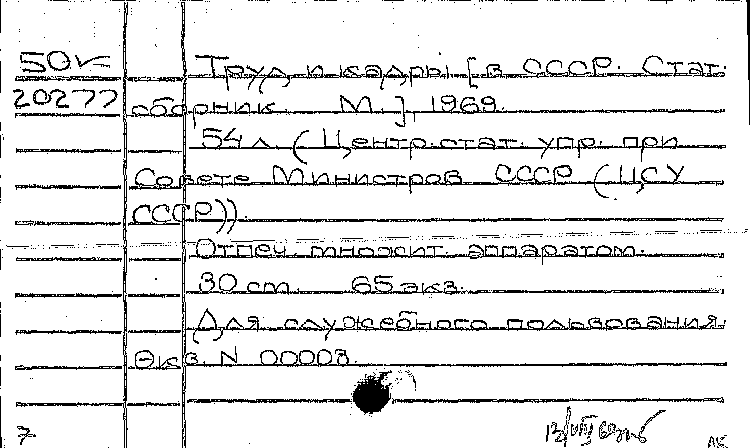 50к Труд и кадры [в СССР. Стат.
20277 сборник. М.], 1969.
54 л. (Центр. стат. упр. при
Совете Министров СССР (ЦСУ
СССР))
Отпеч. множит. аппаратом.
30 см. 65 экз.
Для служебного пользования.
Экз. N 00003.
7